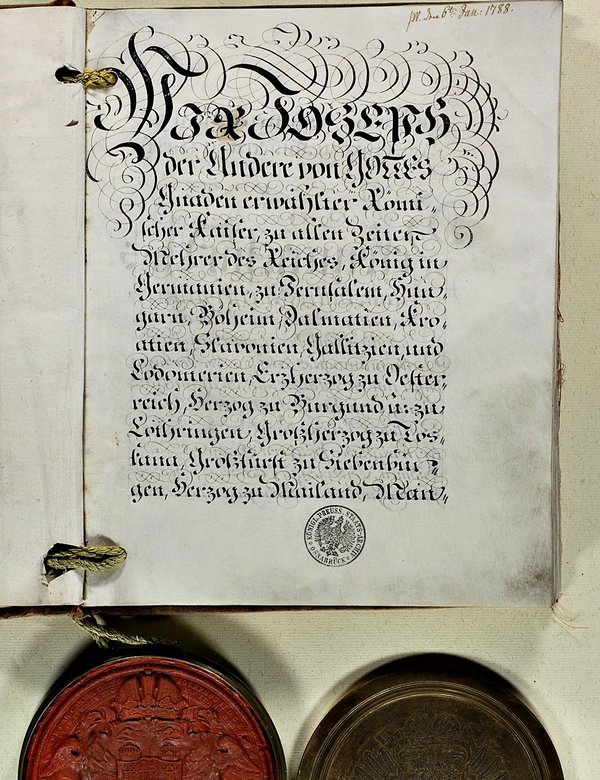 den 6t. Jan: 1788.
WIR JOSEPH
der Andere von GOTTES
Gnaden erwählter Römi-
scher Kaiser, zu allen Zeiten
Mehrer des Reiches, König in
Germanien, zu Jerusalem, Hun-
garn, Boheim, Dalmatien, Kro-
atien, Slavonien, Gallitzien, und
Lodomerien, Erzherzog zu Oester-
reich, Herzog zu Burgund u: zu
Lothringen, Großherzog zu Tos-
kana, Großfürst zu Siebenbür-
gen, Herzog zu Mailand, Man-
KÖNIGL. PREUSS. STAATS-ARCHIV
OSNABRÜCK